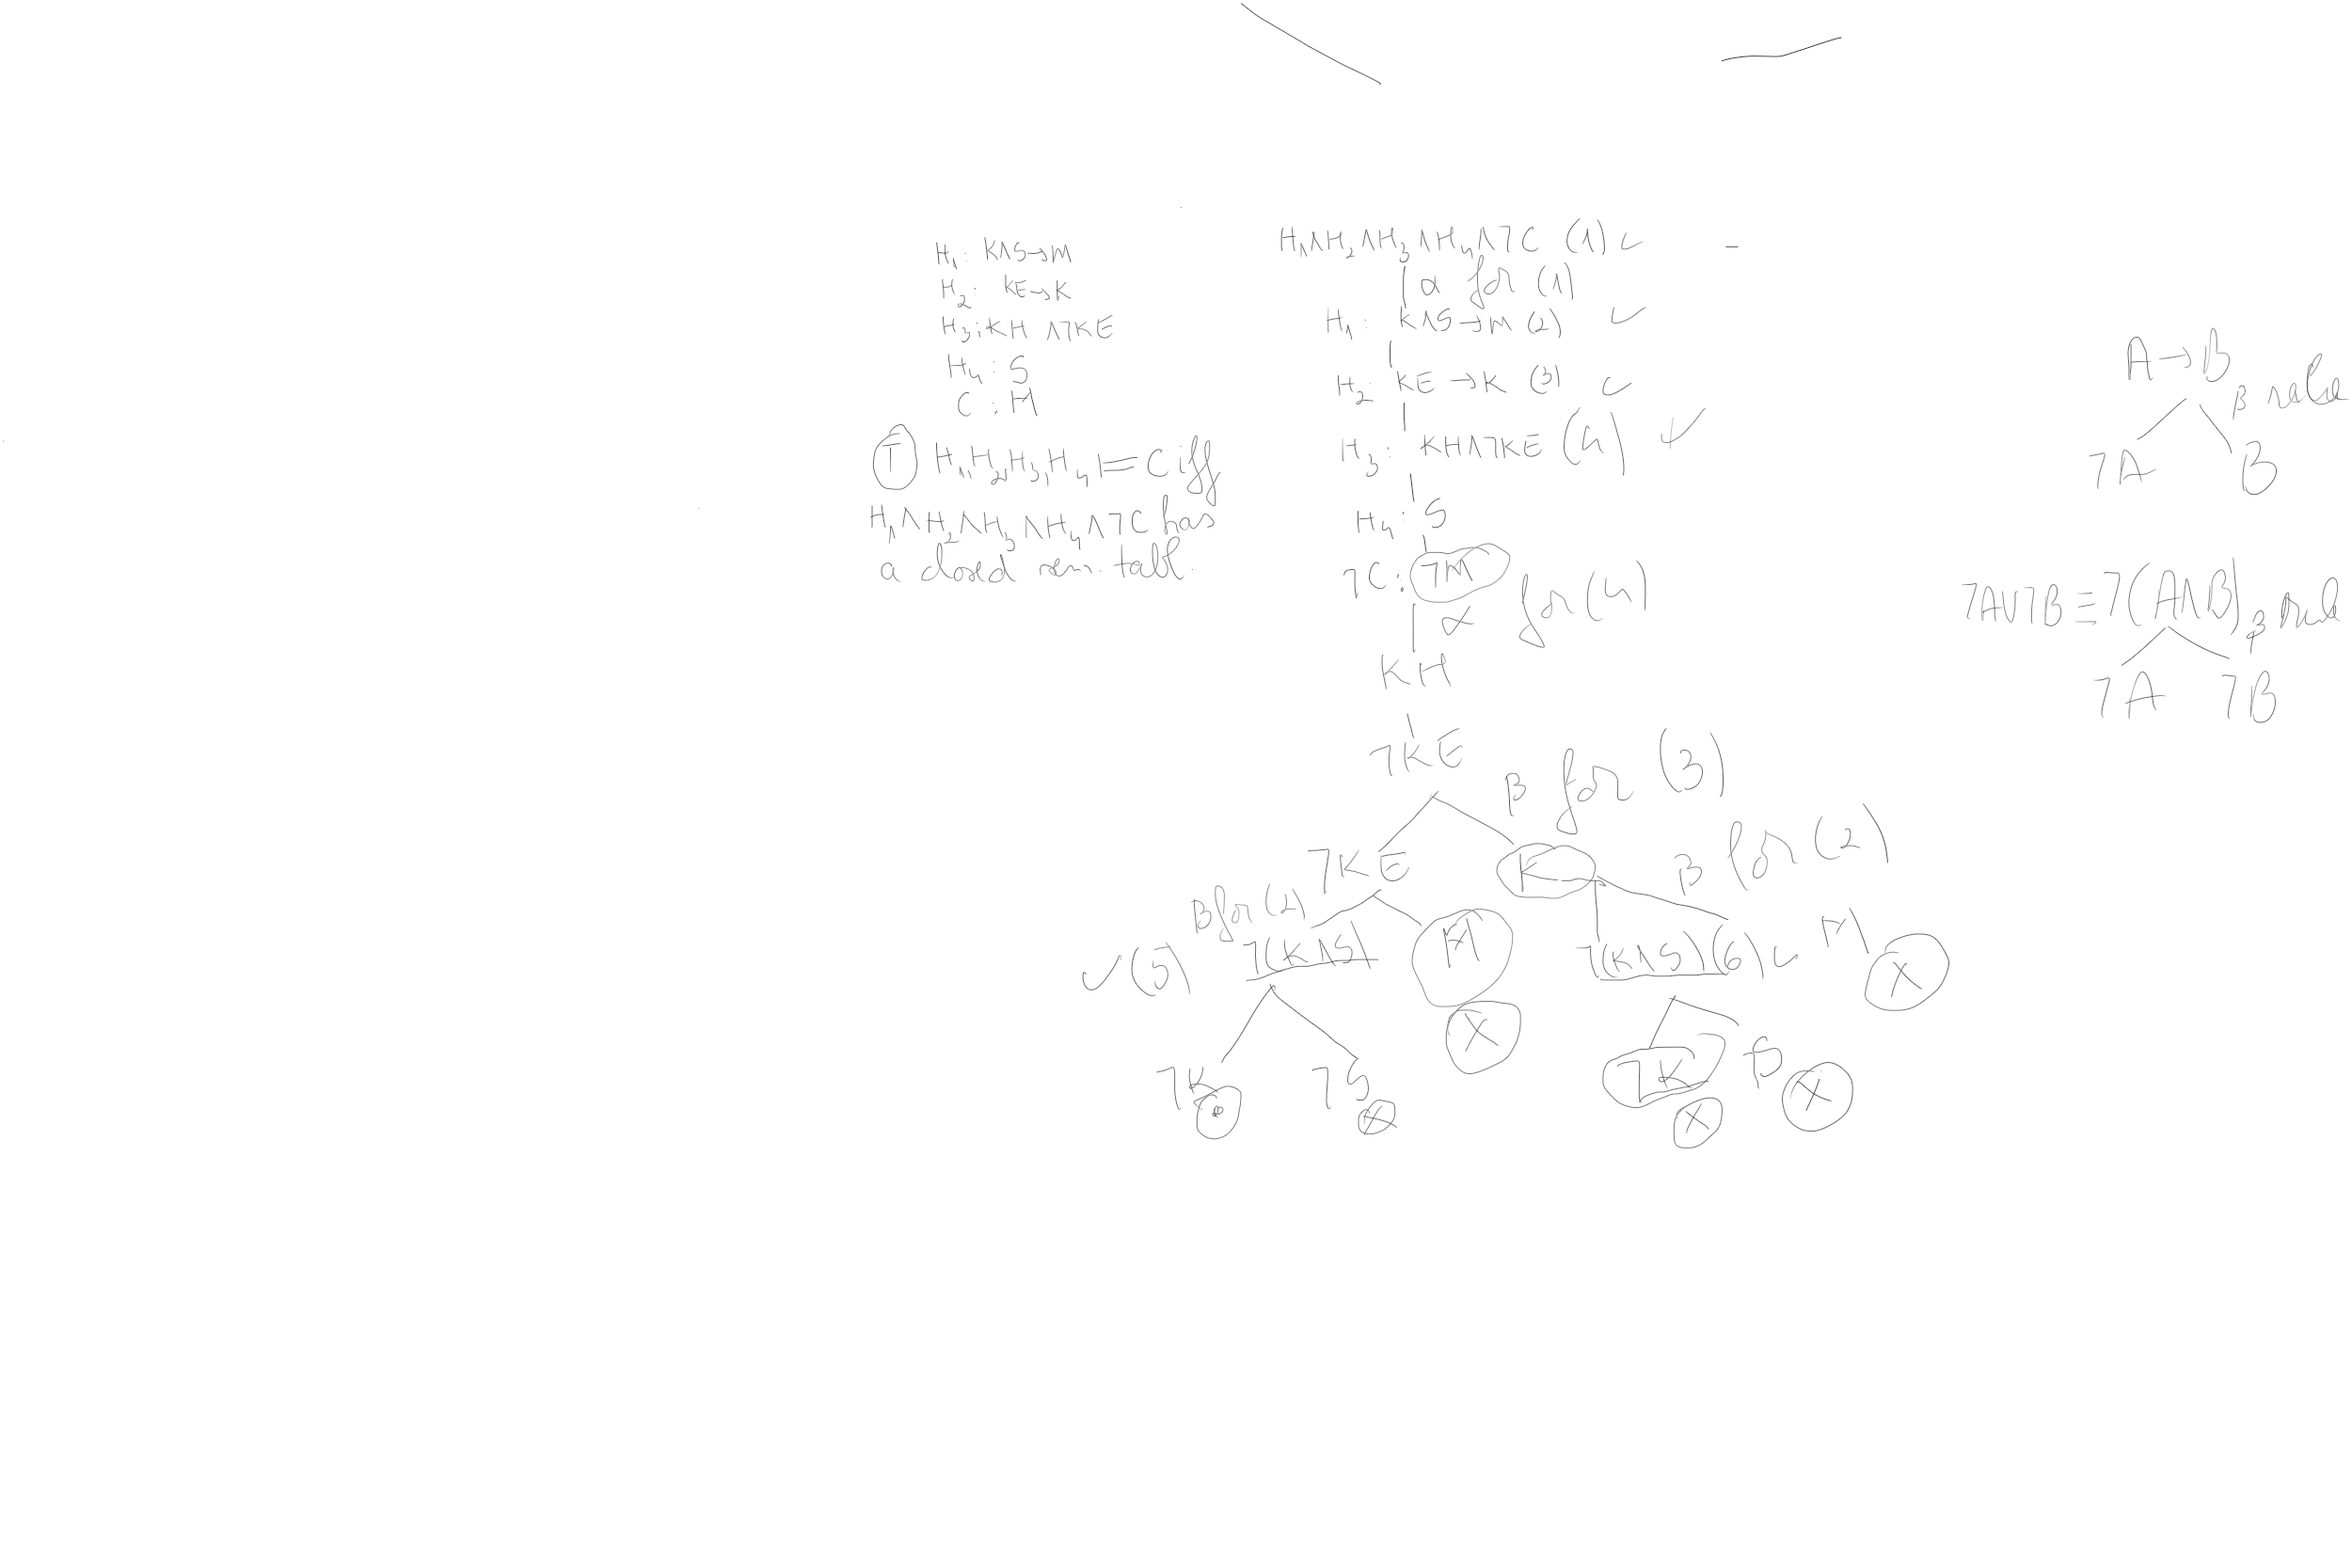 H₁: K∧S→M
H₂: KE→K
H₃: KH ∧ ¬KE
H₄: S
C : M
H₁, H₂, H₃, H₄ ⊨ C iff
H₁∧H₂∧H₃∧H₄∧¬C has
a dead sem. tabl.
H₁∧H₂∧H₃∧H₄∧¬C (1) ✓
α for (1)
H₁: K∧S→M (2) ✓
H₂: KE→K (3) ✓
H₃: KH∧¬KE (4) ✓
H₄: S
¬C: ¬M
α for (4)
KH
¬KE
β for (3)
¬KE
K
β for (2)
β for (2)
✓ (5) ¬(K∧S)
M
¬(K∧S) (6) ✓
M
X
X
¬K
¬S
¬K
¬S
X
X
X
A→B
β rule
¬A
B
¬A∨¬B≡¬(A∧B)
β rule
¬A
¬B